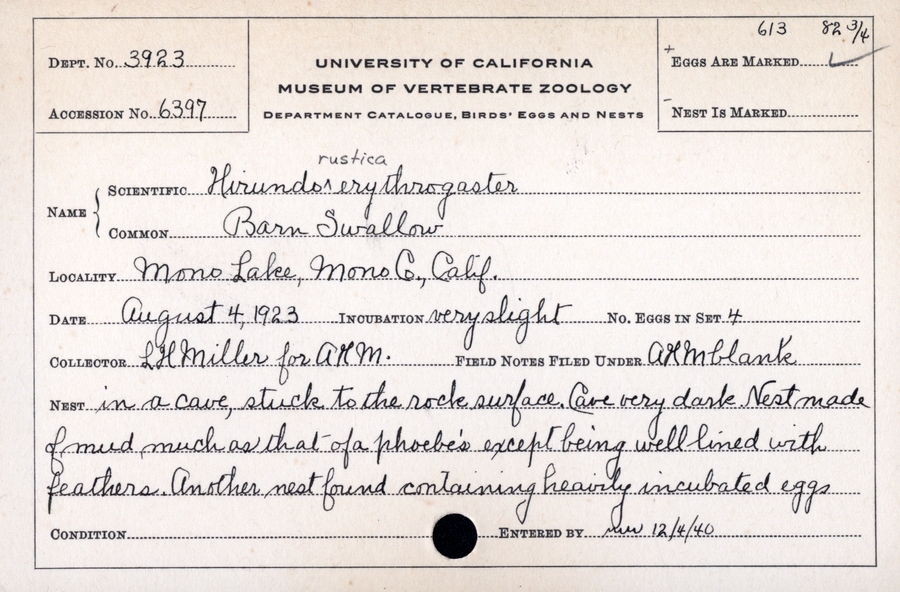 613 82 3/4
DEPT. No. 3923
UNIVERSITY OF CALIFORNIA
+ EGGS ARE MARKED ✓
MUSEUM OF VERTEBRATE ZOOLOGY
ACCESSION No. 6397
DEPARTMENT CATALOGUE, BIRDS' EGGS AND NESTS
- NEST IS MARKED
rustica
NAME { SCIENTIFIC Hirundo ^ erythrogaster
COMMON Barn Swallow
LOCALITY Mono Lake, Mono Co., Calif.
DATE August 4, 1923 INCUBATION very slight No. EGGS IN SET 4
COLLECTOR LH Miller for AHM. FIELD NOTES FILED UNDER AHM blank
NEST in a cave, stuck to the rock surface. Cave very dark. Nest made
of mud much as that of a phoebe's except being well lined with
feathers. Another nest found containing heavily incubated eggs
CONDITION ENTERED BY 12/4/40